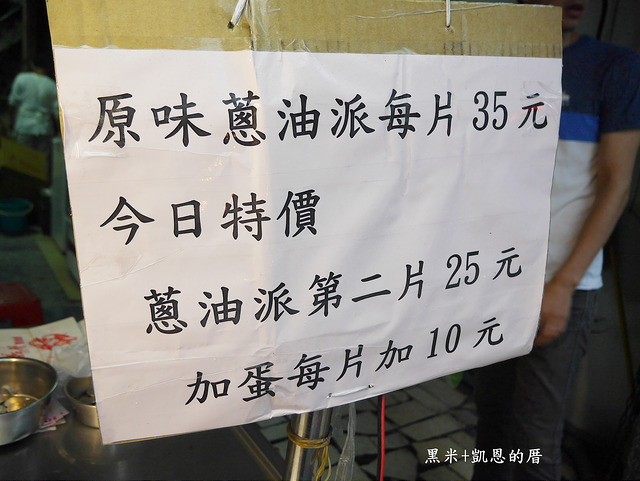 原味蔥油派每片35元
今日特價
蔥油派第二片25元
加蛋每片加10元
黑米+凱恩的厝